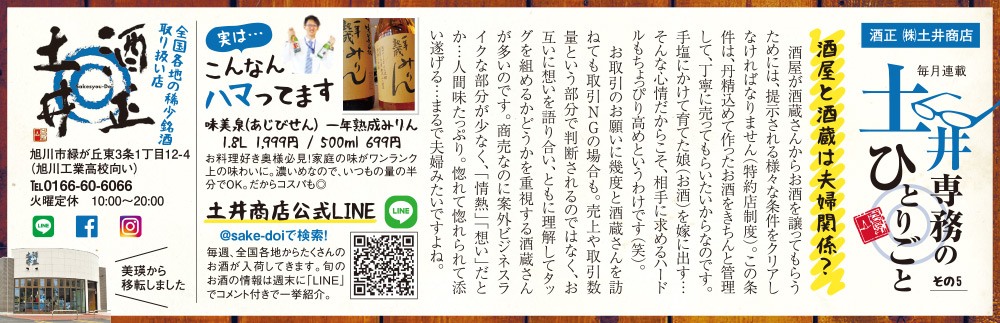 酒正 ㈱土井商店
毎月連載
土井専務の
ひとりごと
その5
酒屋と酒蔵は夫婦関係？
酒屋が酒蔵さんからお酒を譲ってもらう
ためには、提示される様々な条件をクリアし
なければなりません（特約店制度）。この条
件は、丹精込めて作ったお酒をきちんと管理
して、丁寧に売ってもらいたいからなのです。
手塩にかけて育てた娘（お酒）を嫁に出す…
そんな心情だからこそ、相手に求めるハード
ルもちょっぴり高めというわけです（笑）。
お取引のお願いに幾度と酒蔵さんを訪
ねても取引NGの場合も。売上や取引数
量という部分で判断されるのではなく、お
互いに想いを語り合い、ともに理解してタッ
グを組めるかどうかを重視する酒蔵さん
が多いのです。商売なのに案外ビジネスラ
イクな部分が少なく、「情熱」「想い」だと
か…人間味たっぷり。惚れて惚れられて添
い遂げる…まるで夫婦みたいですよね。
実は…
こんなん
ハマってます
味美泉(あじびせん) 一年熟成みりん
1.8L 1,999円 / 500ml 699円
お料理好き奥様必見!家庭の味がワンランク
上の味わいに。濃いめなので、いつもの量の半
分でOK。だからコスパも◎
土井商店公式LINE
LINE
@sake-doiで検索!
毎週、全国各地からたくさんの
お酒が入荷してきます。旬の
お酒の情報は週末に「LINE」
でコメント付きで一挙紹介。
全国各地の稀少銘酒
取り扱い店
酒正
土井
Sakesyou-Doi
旭川市緑が丘東3条1丁目12-4
(旭川工業高校向い)
℡0166-60-6066
火曜定休 10:00〜20:00
LINE
美瑛から
移転しました